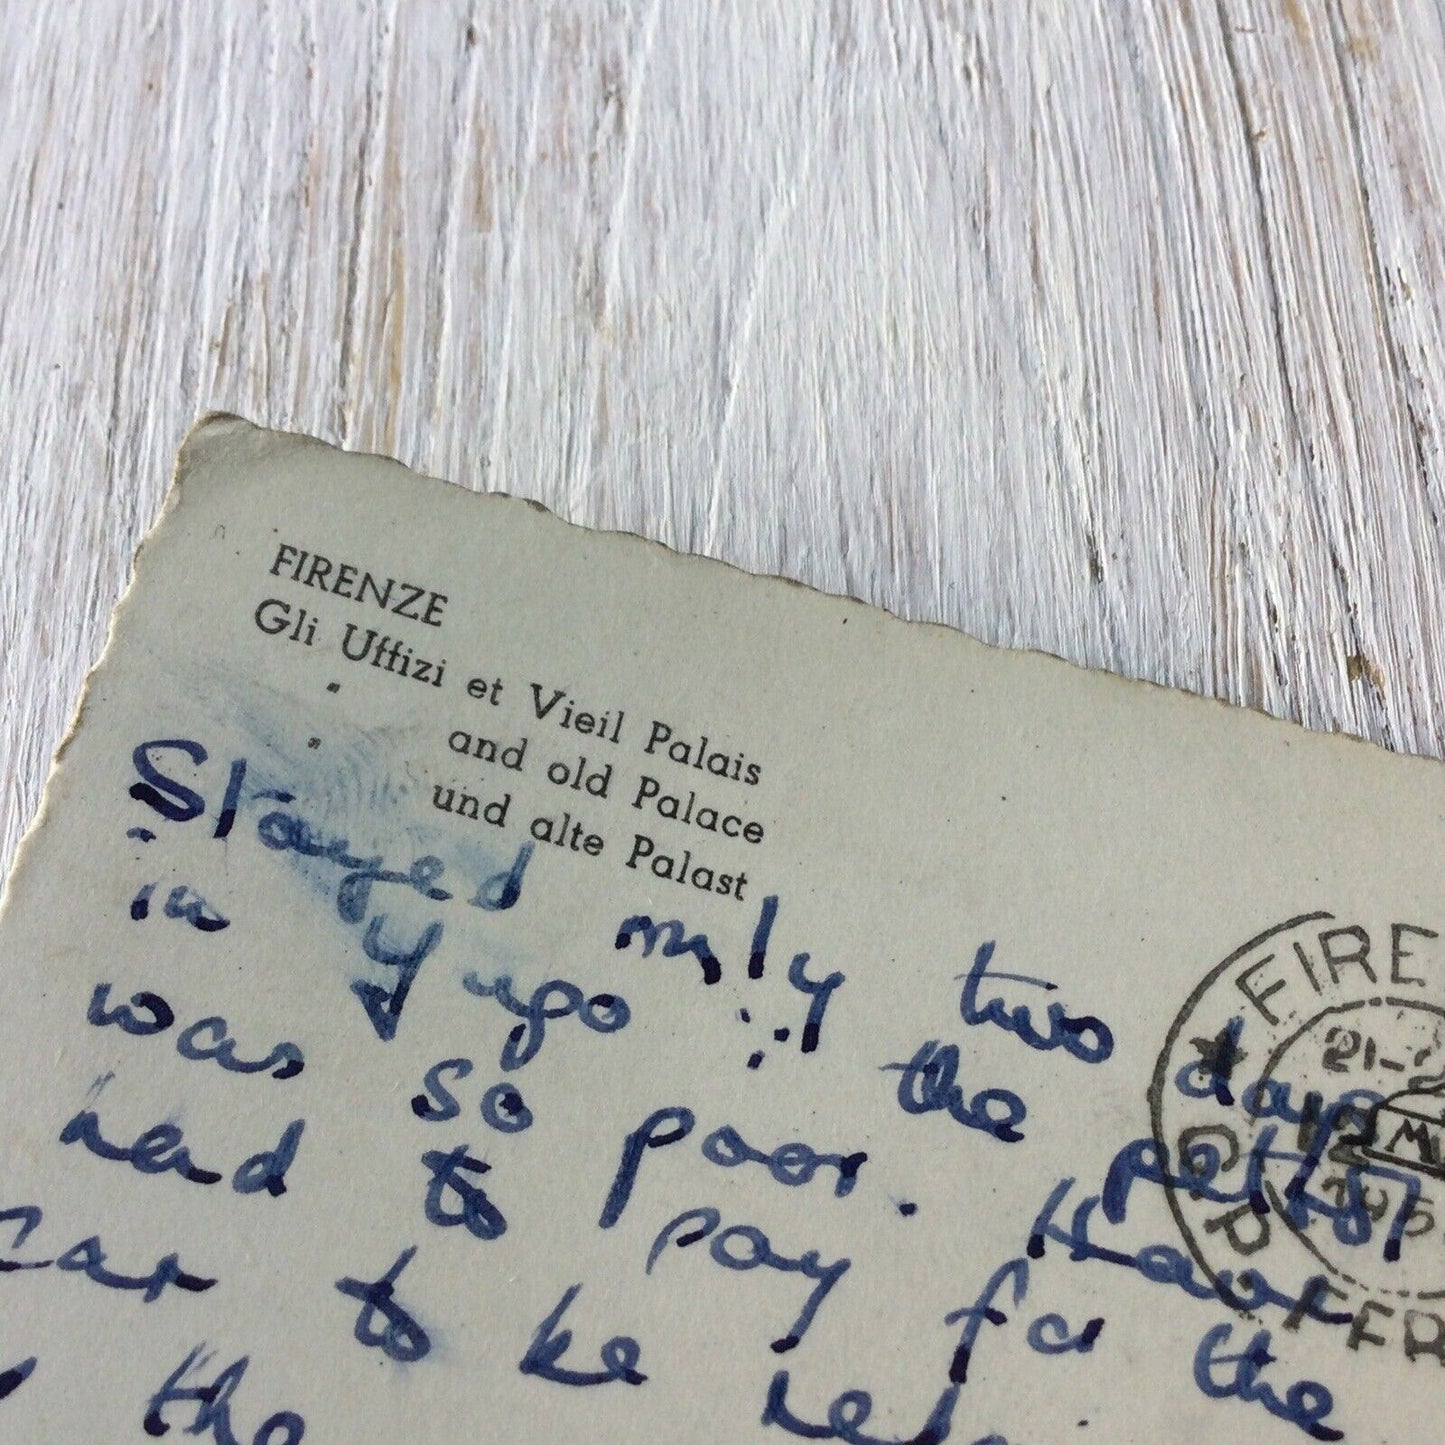 FIRENZE
Gli Uffizi et Vieil Palais
" and old Palace
" und alte Palast
Stayed only two days
in Yugo: the petrol
was so poor. Have
need to pay for the
car to be
the
FIRE
21-
12
195